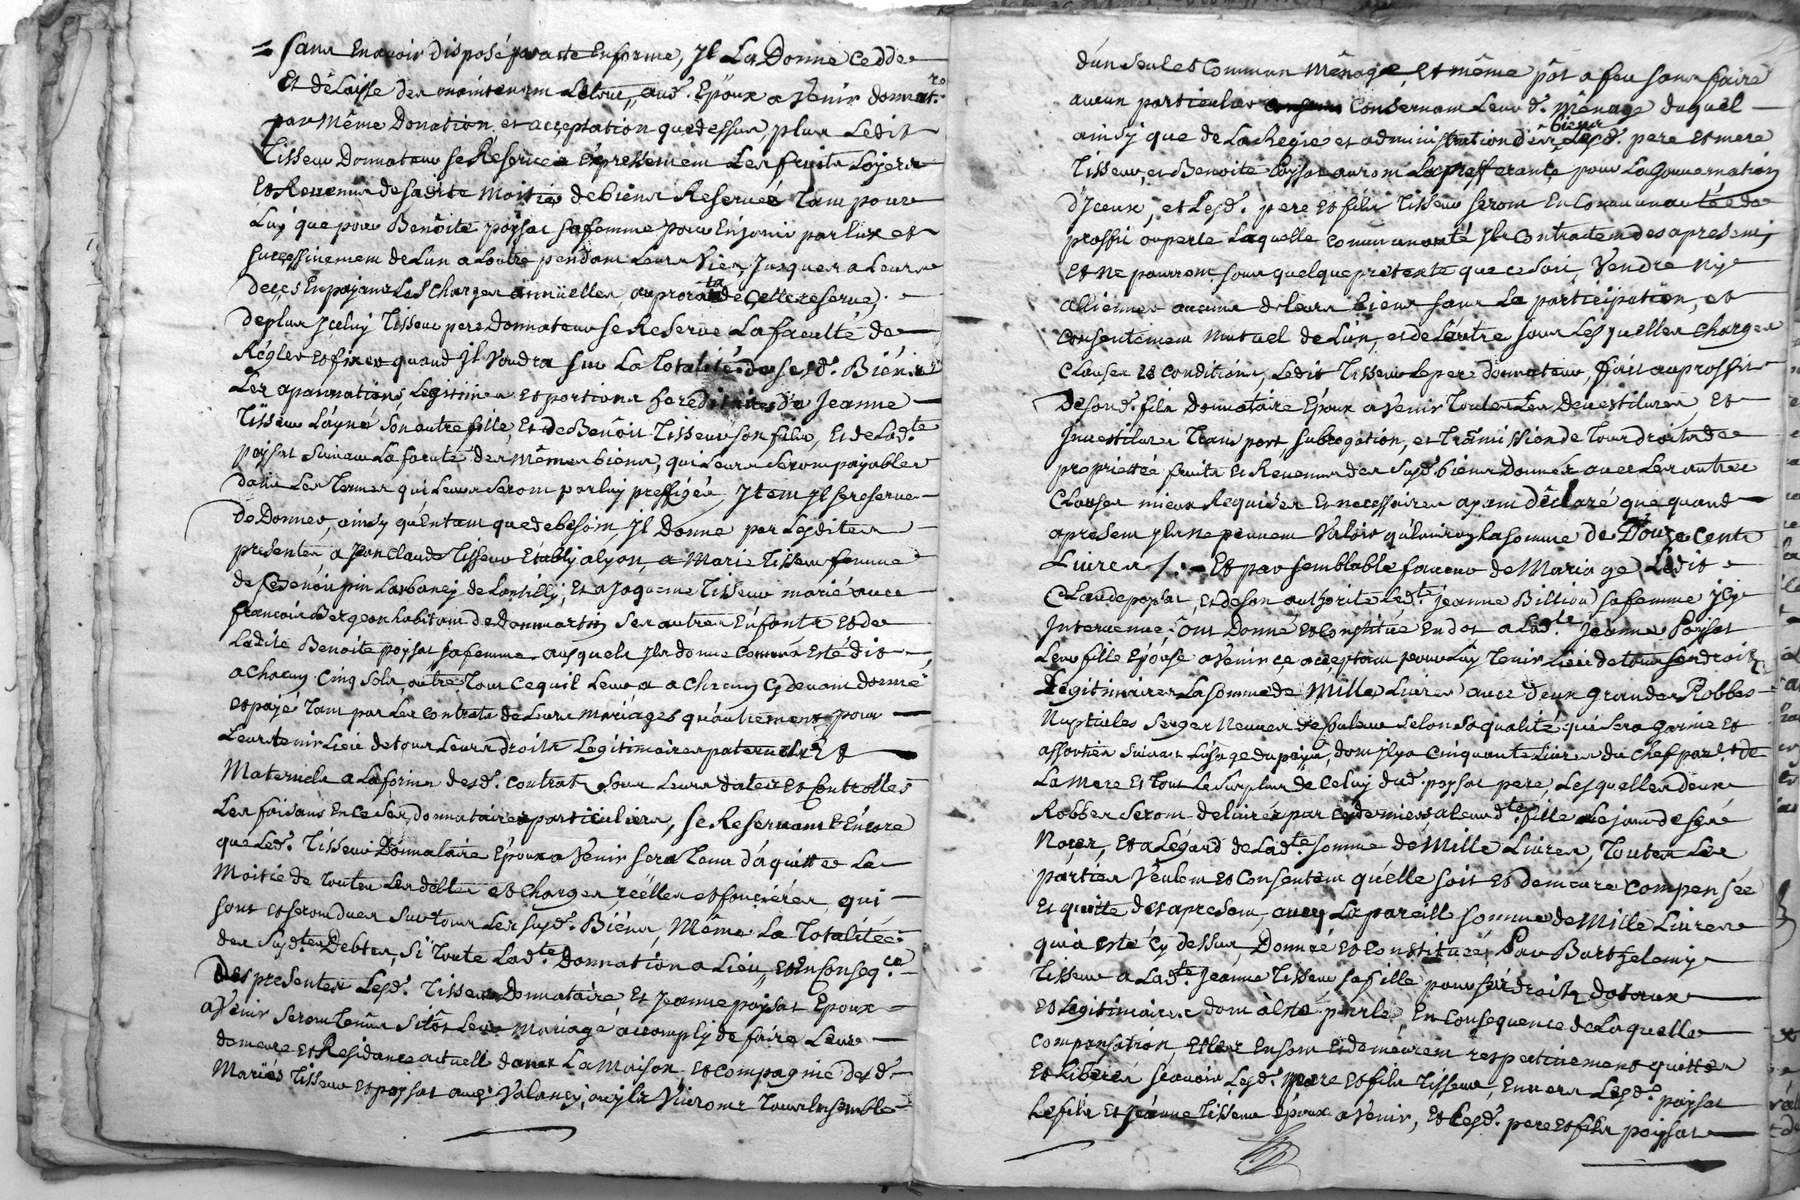 = sans En avoir disposé par acte En forme, Jl La Donne Cedde
Et délaisse des maintenant Le tout, aud. Epoux a Venir donnat.re
par Même Donation et acceptation que dessus, plus Ledit
Tisseur Donnateur se Réserve Expressement Les fruits Loyers
Et Revenus de sadite Moitié de biens Reservés Tant pour
Luy que pour Benoite poysat sa femme pour En jouir par Eux et
successivement de Lun a Lautre pendant Leurs Vies, Jusques a Leurs
deces En payant Les Charges annuelles, au prorata de Celle reserve)
De plus Jceluy Tisseur pere Donnateur se Reserve La faculté de
Régler et fixer quand Jl Voudra sur La Totalité de sesd. Biens
Les apannations, Legitimes et portions hereditaires de Jeanne
Tisseur Laynée Son autre fille, Et de Benoit Tisseur son fils, Et de Lad.te
poysat suivant La faculté des Mêmes biens, qui Leurs seront payables
dans Les termes qui Leurs seront par luy preffigés, Jtem Jl se reserve
De Donner, ainsy qu'En tant que de besoin, Jl Donne par Lesdites
presentes a Jean Claude Tisseur Etably a Lyon, a Marie Tisseur femme
de pin de Lentilly, Et a Jaqueme Tisseur marié avec
francois Bergeon habitant de dommartin Ses autres Enfants Et de
Ladite Benoite poysat sa femme ausquels Jl a donné Comme Est é dit
a Chacun Cinq Sols, outre Tout Ce quil Leur a a Chacun Cy devant donné
et payé tant par Les Contrats de Leurs Mariages qu'autrement, pour
Leur tenir Lieu de tous Leurs droits Legitimaires paternels Et
Maternels a La forme desd. Contrats Sous Leurs dates Et Controlles
Les faisant En Ce Ses donnataires particuliers, se Reservant Encore
que Led. Tisseur Donnataire Epoux a Venir sera Tenu d'aquitter La
Moitié de Toutes Les debtes et Charges réelles et foncières, qui
sont et seront dues Sur tous Les susd. Biens, Même La Totalitée
des Susd.tes Debtes, si Toute Lad.te Donnation a Lieu, et En Conseq.ce
Des presentes Lesd. Tisseur Donnataire, Et Jeanne poysat Epoux
a Venir seront tenus sitôt Leur Mariage accomply de faire Leur
demeure et Residance actuelle dans La Maison Et Compagnie desd.
Maries Tisseur et poysat aud. Valancy, ou Jls Vivront Tous Ensemble
d'un seul et Commun Ménage, Et même pôt a feu sans faire
aucun particulier Consernant Leurd. Ménage duquel
ainsy que de La Regie et administration des biens Lesd. pere et mere
Tisseur, et Benoite poysat auront La prefferance pour La Gouvernation
d'Jceux, et Lesd. pere et fils Tisseur seront En Communauté de
proffit ou perte Laquelle Communauté Jls Contractent des a present
Et Ne pourront sous quelque pretexte que ce soit, Vendre ny
alliener aucuns de leurs biens sans La participation, et
Consentement Mutuel de Lun, et de Lautre sous Lesquelles Charges
Clauses Et Conditions, Ledit Tisseur Le pere donnateur, fait au proffit
de Sond. fils Donnataire Epoux a Venir Toutes Les Devestitures, Et
Jnvestitures Transport, Subrogation, et Transmission de Tous droits de
proprietté fruits Et Revenus des Susd. biens Donnés avec Les autres
Clauses mieux Requises Et necessaires ayant Déclaré que quand
a present Jls ne peuvent Valoir qu'Environ La somme de Douze Cents
Livres /:- Et par semblable faveur de Mariage Ledit
Claude poysat, et de son authorité Led.te Jeanne Billion sa femme Jcy
Jntervenue, Ont Donné et Constitué En dot a Lad.te Jeanne Poysat
Leur fille Epouse a Venir Ce acceptant pour Luy Tenir Lieu de tous ses droits
Légitimaires La somme de Mille Livres avec Deux grandes Robbes
Nuptiales Serges Neuves de Couleur Selon Sa qualité qui Sera garnie Et
assorties suivant L'usage du païs, dont Jl y a Cinquante Livres du Chef par.t de
La Mere Et tout Le Surplus de Celuy dud. poysat pere, Lesquelles deux
Robbes Seront délivrés par Ce dernier a leurd.te fille Le jour de ses
Noces, Et a Légard de Lad.te somme de Mille Livres, Toutes Les
parties Veulent Et Consentent qu'Elle soit Et demeure Compensée
Et quitte dès a present, avec La pareill somme de Mille Livres
qui a esté Cy dessus, Donné et Constituée Par Barthelemy
Tisseur a Lad.te Jeanne Tisseur sa fille pour ses droits dotaux
et Legitimaires dont a Eté parlé, En Consequence de Laquelle
Compansation, Elles En sont Et demeurent respectivement quittes
Et Liberés scavoir Lesd. pere et fils Tisseur, Envers Lesd. poysat
Le fils Et Jeanne Tisseur Epoux a Venir, Et Lesd. pere et fils poysat